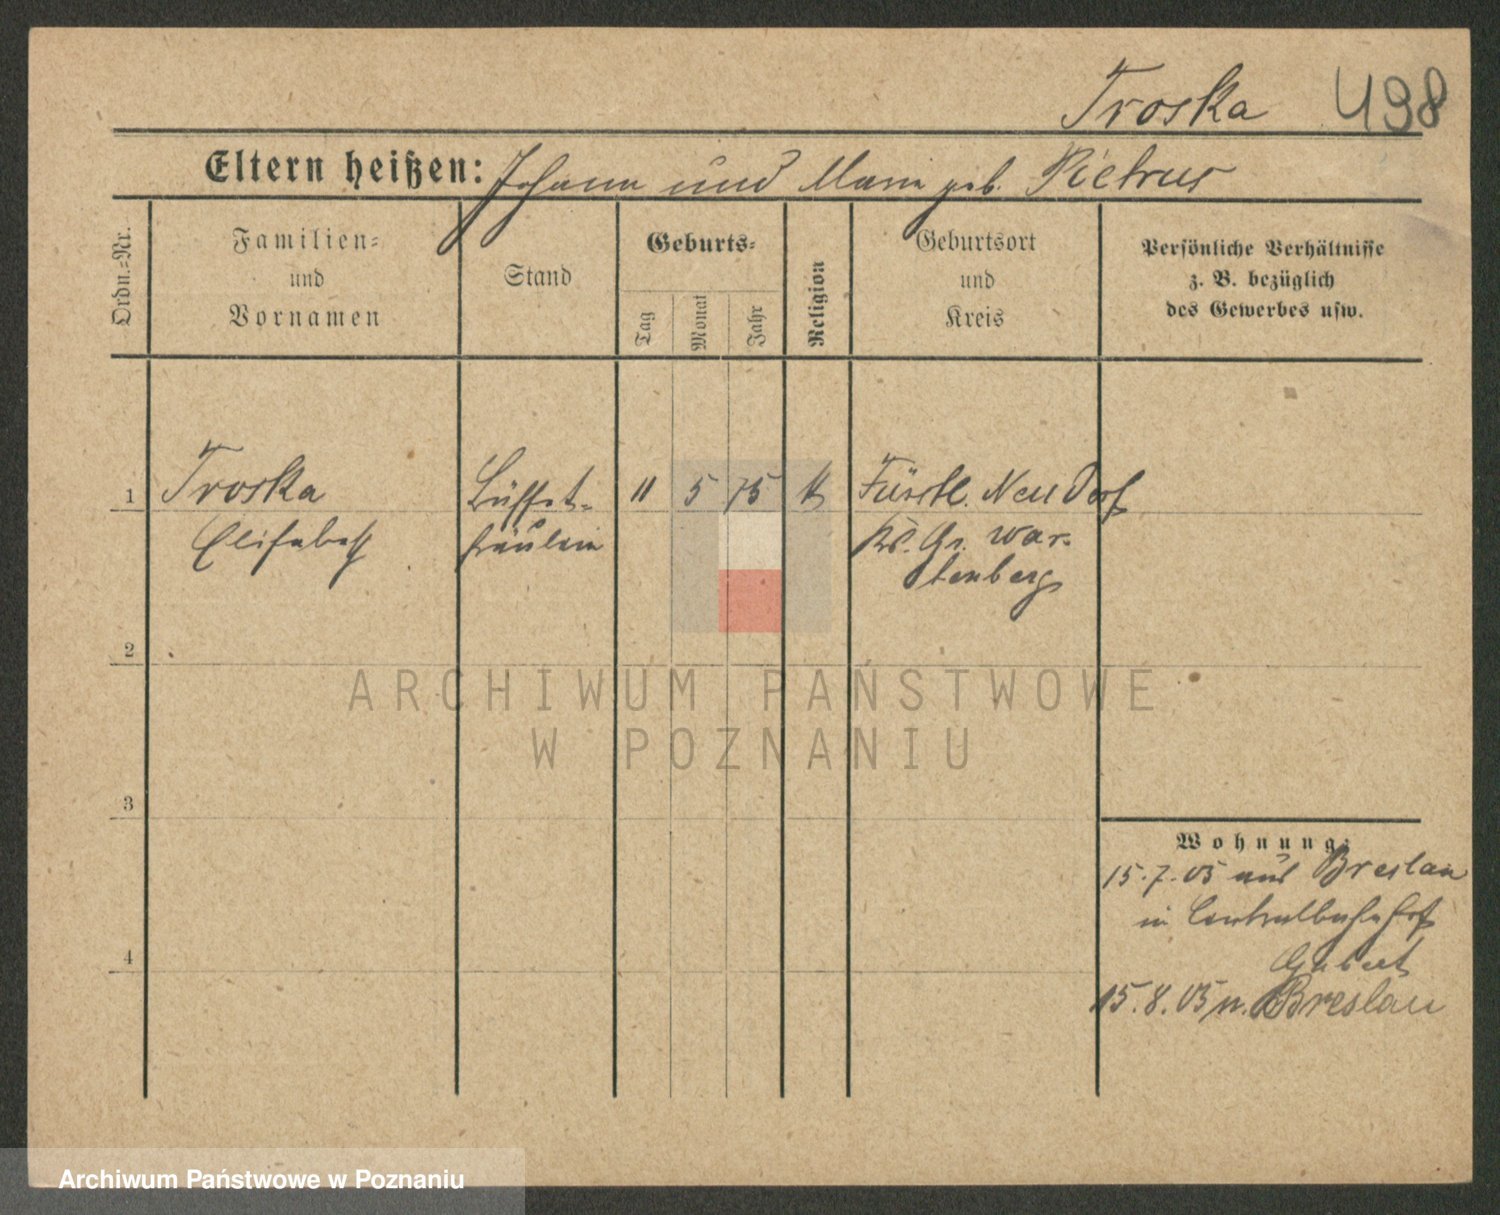 Troska 498
Eltern heißen: Johann und Marie geb. Pietrus
Ordn.-Nr.
Familien-
und
Vornamen
Stand
Geburts-
Tag
Monat
Jahr
Religion
Geburtsort
und
Kreis
Persönliche Verhältnisse
z. B. bezüglich
des Gewerbes usw.
1 Troska Büffet- 11 5 75 k Fürstl. Neudorf
Elisabeth fräulein Krs. Gr. War-
tenberg
2
3
4
ARCHIWUM PAŃSTWOWE
W POZNANIU
Wohnung:
15.7.05 aus Breslau
in Centralbahnhof
15.8.05 n. Breslau
Archiwum Państwowe w Poznaniu